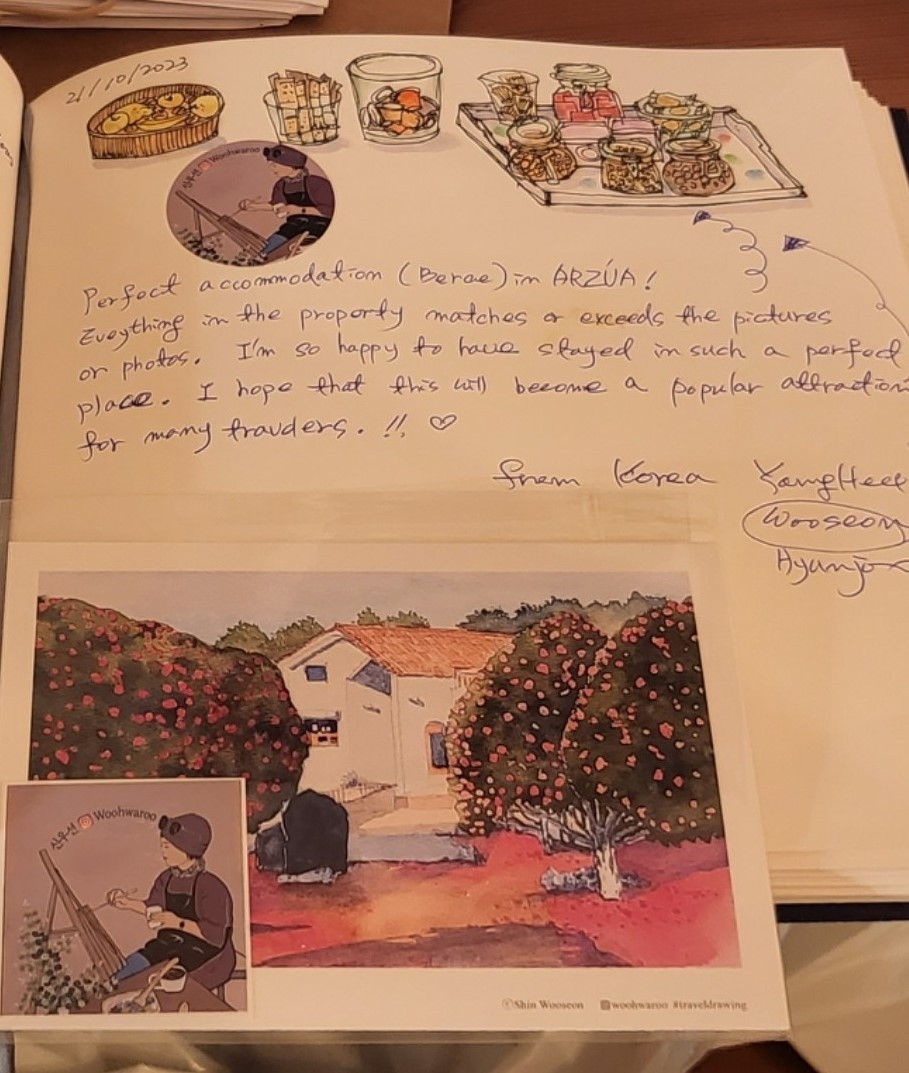 21/10/2023
신우선 Woohwaroo
Perfect accommodation (Berae) in ARZÚA!
Eveything in the property matches or exceeds the pictures
or photos. I'm so happy to have stayed in such a perfect
place. I hope that this will become a popular attraction
for many travelers. !! ♡
from Korea YangHee
Wooseon
Hyunjo
신우선 Woohwaroo
©Shin Wooseon woohwaroo #traveldrawing